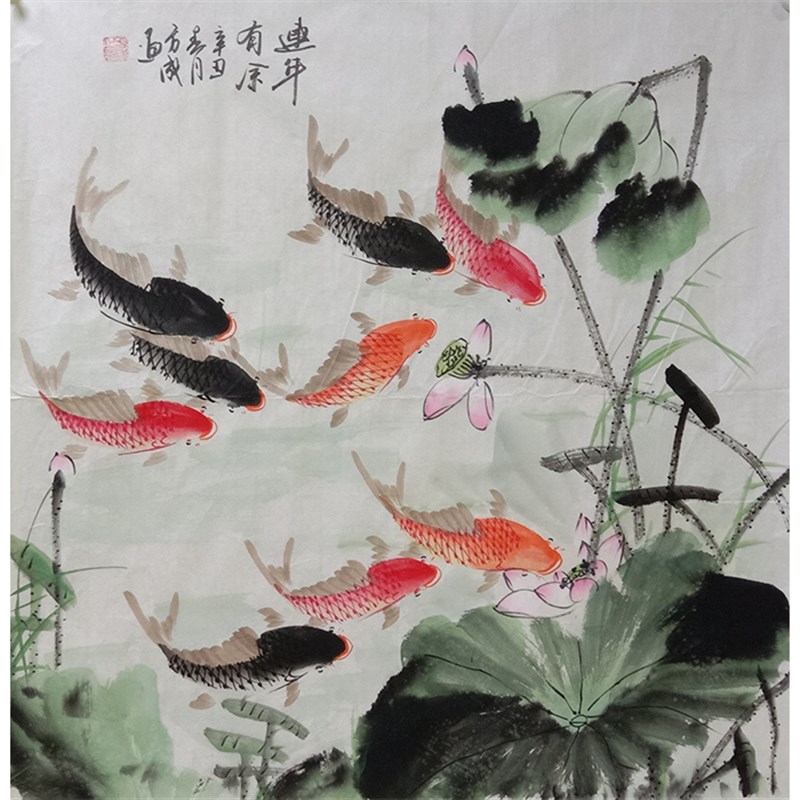 連年
有余
辛丑
春月
方成
画